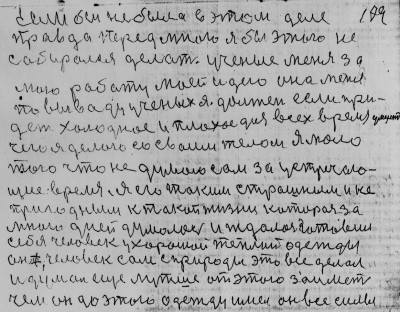 если бы не была в этом деле 199
правда передмною я бы этого не
собирался делать учение меня за
мою работу моей идею она меня
из учеников я должен если при-
дет холодное и плохое для всех время
чего я делаю со своим телом я мало
того что не думаю сам за устречаю-
щие время. я его таким страшным и не
пригодным к такой жизни которая за
много дней думалась и ждалася готовил
себя человек ухорошой теплой одежды
он человек сам с природы это все делал
и думал еще лутше от этого займет
чем он до этого одежду имел он все силы